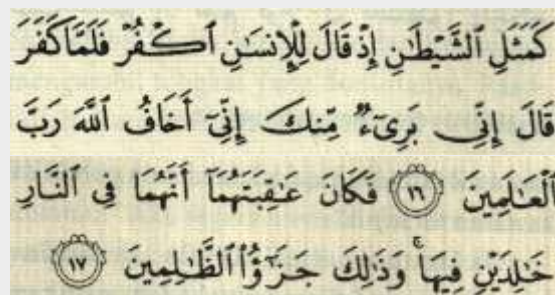 كَمَثَلِ ٱلشَّيْطَٰنِ إِذْ قَالَ لِلْإِنسَٰنِ ٱكْفُرْ فَلَمَّا كَفَرَ
قَالَ إِنِّى بَرِىٓءٌ مِّنكَ إِنِّىٓ أَخَافُ ٱللَّهَ رَبَّ
ٱلْعَٰلَمِينَ ١٦ فَكَانَ عَٰقِبَتَهُمَآ أَنَّهُمَا فِى ٱلنَّارِ
خَٰلِدَيْنِ فِيهَا ۚ وَذَٰلِكَ جَزَٰٓؤُا۟ ٱلظَّٰلِمِينَ ١٧